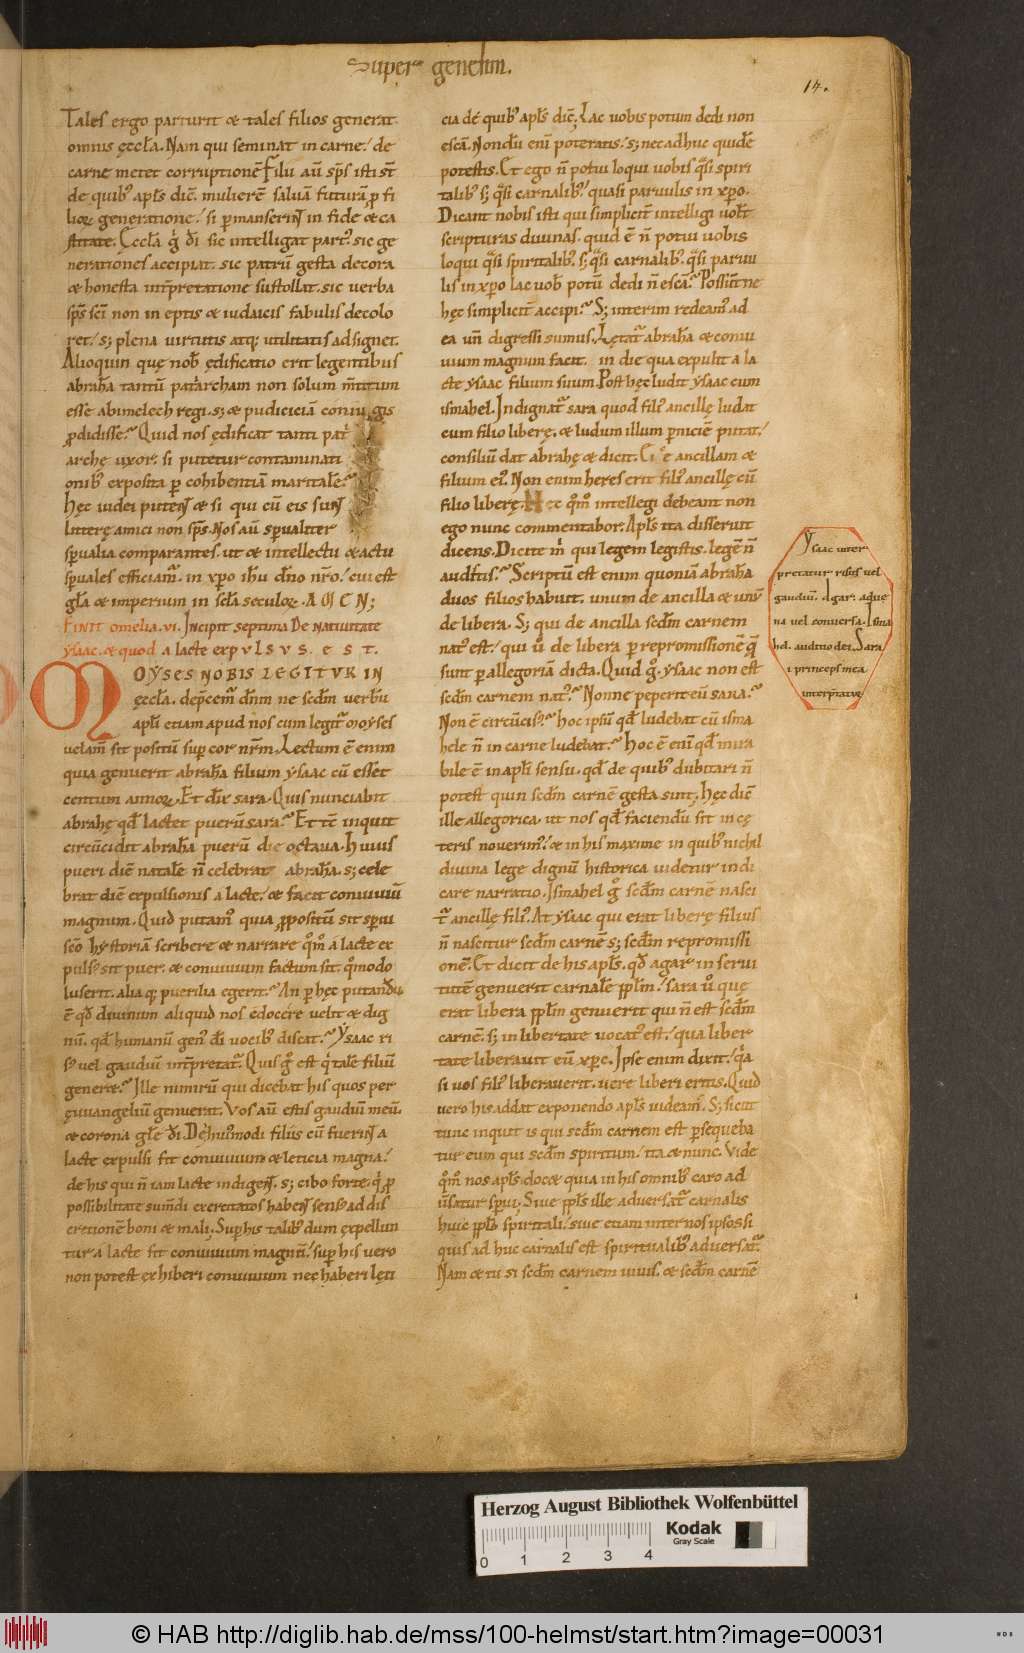 Super genesim.
14.
Tales ergo parturit & tales filios generat
omnis ęccła. Nam qui seminat in carne / de
carne metet corruptionē Filii aū sp̄s isti sī
de quib; apłs dič. mulierē saluā futurā ꝑ fi
lioꝝ generatione / si ꝑmanserīt in fide & ca
stitate. Ęccła g̊ dī sic intelligat part; sic ge
nerationes accipiat. sic patrū gesta decora
& honesta int̄pretatione sustollat. sic uerba
sp̄s scī non in eptis & iudaicis fabulis decolo
ret / s; plena uirtutis atq; utilitatis adsignet.
Alioquin quę nob̄ ędificatio erit legentibus
abrahā tantū pat̊archam non solum m̄titum
esse abimelech regi. s; & pudiciciā coniugis
ꝓdidisse? Quid nos ędificat tanti pat̊
archę uxor. si putetur contaminati
onib; exposita ꝑ cohibentiā maritalē?
Hęc iudei putent & si qui cū eis sunt
litterę amici non sp̄s. Nos aū sp̄ualiter
sp̄ualia comparantes. ut & intellectu & actu
sp̄uales efficiam̄. in xp̄o ihū dn̄o nr̄o / cui est
gła & imperium in scła seculoꝝ. AMEN;
Finit omelia. vi. Incipit septima De natiuitate
ysaac. & quod a lacte expVLSVS. EST.
MOYSES NOBIS LEGITVR IN
ęccła. dep̄cem̄ dn̄m ne scd̄m uerbū
apłi etiam apud nos cum legit̄ moyses
uelam̄ sit positū sup cor nr̄m. Lectum ē enim
quia genuerit abrahā filium ysaac cū esset
centum annoꝝ. Et dix̄ sara. Quis nunciabit
abrahę qd̄ lactet puerū sara? Et tc̄ inquit
circūcidit abrahā puerū die octaua. Huius
pueri diē natalē n̄ celebrat abrahā. s; cele
brat diē expulsionis a lacte / & facit conuiuiū
magnum. Quid putam; quia ꝓpositū sit sp̄ui
scō hystoriā scribere & narrare q̊m̊ a lacte ex
puls; sit puer. & conuiuium factum sit. q̊modo
luserit. aliaq; puerilia egerit? An ꝑ hęc putandū
ē qd̄ diuinum aliquid nos edocere uelit & dig
nū. qd̄ humanū gen; dī uocib; discat? Ysaac ri
s; uel gaudiū int̄pretat̄. Quis g̊ est q̊ talē filiū
generet? Ille nimirū qui dicebat his quos per
ęuuangeliū genuerat. Vos aū estis gaudiū meū.
& corona głę dī. De hui;modi filiis cū fuerīt a
lacte expulsi fit conuiuium & leticia magna /
de his qui n̄ iam lacte indigent. s; cibo forte. q̊ ꝓ
possibilitate sumdi exercitatos habent sens; ad dis
cretionē boni & mali. Sup his talib; dum expellun
tur a lacte fit conuiuium magnū. sup his uero
non potest exhiberi conuiuium nec haberi lęti
cia dé quib; apłs dič. Lac uobis potum dedi non
escā. Nondū enī poteratis / s; nec adhuc quidē
potestis. Et ego n̄ potui loqui uobis q̄si spiri
talib; s; q̄si carnalib; / quasi paruulis in xp̄o.
Dicant nobis isti qui simplicit̄ intelligi uolt̄
scripturas diuinas. quid ē n̄ potui uobis
loqui q̄si spiritalib; s; q̄si carnalib;. q̄si paruu
lis in xp̄o lac uob̄ potū dedi n̄ escā? Possūt ne
hęc simplicit̄ accipi? S; interim redeam; ad
ea un̄ digressi sumus. Lętat̄ abrahā & conui
uium magnum facit. in die qua expulit a la
cte ysaac filium suum. Post hęc ludit ysaac cum
ismahel. Indignat̄ sara quod fili; ancillę ludat
cum filio liberę. & ludum illum ꝑniciē putat /
consiliū dat abrahę & dicit. Ei ce ancillam &
filium ei;. Non enim heres erit fili; ancillę cū
filio liberę. Hęc q̊m̊ intellegi debeant non
ego nunc commentabor. Apłs ita disseruit
dicens. Dicite m̊ qui legem legistis. legē n̄
audīstis? Scriptū est enim quoniā abrahā
duos filios habuit. unum de ancilla & unū
de libera. S; qui de ancilla scd̄m carnem
nat; est / qui ů de libera ꝑ repromissionē q̄
sunt ꝑ allegoriā dicta. Quid g̊. ysaac non est
scd̄m carnem nat;? Nonne peperit eū sara?
Non ē circūcis;? hoc ipsū qd̄ ludebat cū isma
hele n̄ in carne ludebat? Hoc ē enī qd̄ mira
bile ē in apłi sensu. qd̄ de quib; dubitari n̄
potest quin scd̄m carnē gesta sint. Hęc diē
ille allegorica. ut nos qd̄ faciendū sit in cę
teris nouerim; / & in his maxime in quib; nichil
diuina lege dignū historica uidetur indi
care narratio. Ismahel g̊ scd̄m carnē nasci
t̄ ancillę fili;. At ysaac qui erat liberę filius
n̄ nascitur scd̄m carnē s; scd̄m repromissi
onē. Et dicit de his apłs. qd̄ agar in serui
tutē genuerit carnalē pplm̄ / sara ů quę
erat libera pplm̄ genuerit qui n̄ est scd̄m
carnē. s; in libertate uocat; est / qua liber
tate liberauit eū xp̄c. Ipse enim dixit / q̊a
si uos fili; liberauerit. uere liberi eritis. Quid
uero his addat exponendo apłs uideam;. S; sicut
tunc inquit is qui scd̄m carnem est ꝑsequeba
tur eum qui scd̄m spiritum / ita & nunc. Vide
q̊m̊ nos apłs docet quia in his omnib; caro ad
ūsatur sp̄ui. Siue ppłs ille aduersat̄ carnalis
huic ppłō spiritali / siue etiam inter nos ipsos si
quis ad huc carnalis est spiritualib; aduersat̄.
Nam & tu si scd̄m carnem uiuis. & scd̄m carnē
Ysaac inter
pretatur risus uel
gaudiū. Agar. aduę
na uel conuersa. Isma
hel. auditio dei. Sara
i princeps mea
interp̄tatur
Herzog August Bibliothek Wolfenbüttel
0 1 2 3 4
Kodak
Gray Scale
© HAB http://diglib.hab.de/mss/100-helmst/start.htm?image=00031